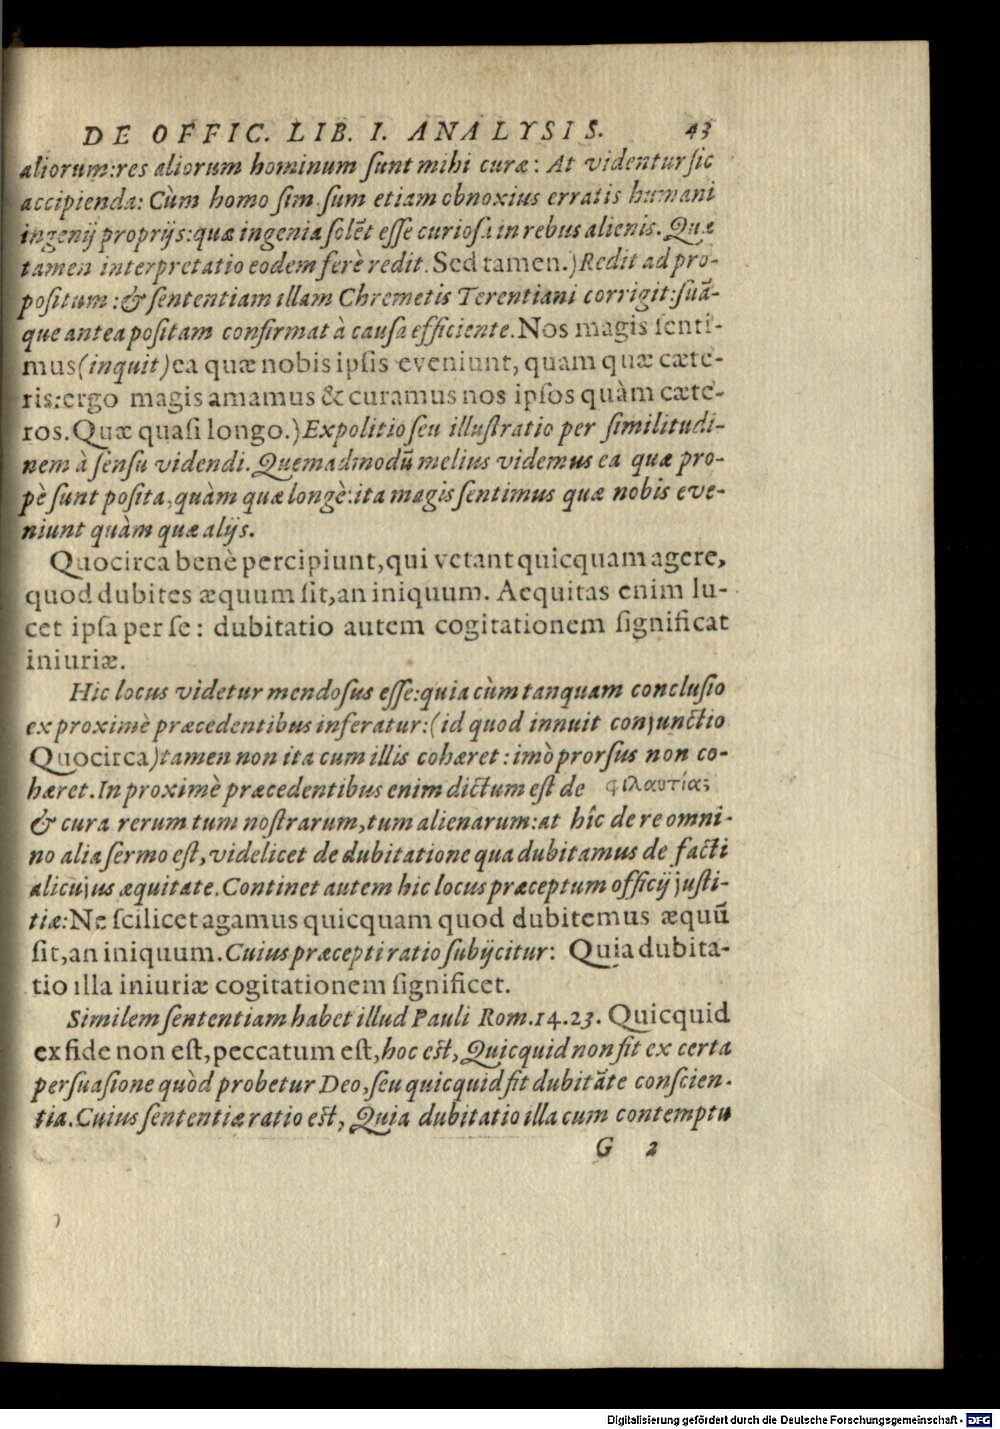 DE OFFIC. LIB. I. ANALYSIS. 43
aliorum: res aliorum hominum ſunt mihi curæ: At videntur ſic
accipienda: Cùm homo ſim ſum etiam obnoxius erratis humani
ingenij proprijs: quæ ingenia ſolẽt eſſe curioſa in rebus alienis. Quæ
tamen interpretatio eodem ferè redit. Sed tamen.) Redit ad pro-
poſitum: & ſententiam illam Chremetis Terentiani corrigit: ſuã-
que antea poſitam confirmat à cauſa efficiente. Nos magis ſenti-
mus (inquit) ea quæ nobis ipſis eveniunt, quam quæ cæte-
ris: ergo magis amamus & curamus nos ipſos quàm cæte-
ros. Quæ quaſi longo.) Expolitio ſeu illuſtratio per ſimilitudi-
nem à ſenſu videndi. Quemadmodũ melius videmus ea quæ pro-
pè ſunt poſita, quàm quæ longè: ita magis ſentimus quæ nobis eve-
niunt quàm quæ alijs.
Quocirca benè percipiunt, qui vetant quicquam agere,
quod dubites æquum ſit, an iniquum. Aequitas enim lu-
cet ipſa per ſe: dubitatio autem cogitationem ſignificat
iniuriæ.
Hic locus videtur mendoſus eſſe: quia cùm tanquam concluſio
ex proximè præcedentibus inferatur: (id quod innuit conjunctio
Quocirca) tamen non ita cum illis cohæret: imò prorſus non co-
hæret. In proximè præcedentibus enim dictum eſt de φιλαυτίας
& cura rerum tum noſtrarum, tum alienarum: at hîc de re omni-
no alia ſermo eſt, videlicet de dubitatione qua dubitamus de facti
alicujus æquitate. Continet autem hic locus præceptum officij juſti-
tiæ: Ne ſcilicet agamus quicquam quod dubitemus æquũ
ſit, an iniquum. Cuius præcepti ratio ſubijcitur: Quia dubita-
tio illa iniuriæ cogitationem ſignificet.
Similem ſententiam habet illud Pauli Rom. 14. 23. Quicquid
ex fide non eſt, peccatum eſt, hoc eſt, Quicquid non fit ex certa
perſuaſione quòd probetur Deo, ſeu quicquid fit dubitãte conſcien-
tia. Cuius ſententiæ ratio eſt, Quia dubitatio illa cum contemptu
G 2
Digitalisierung gefördert durch die Deutsche Forschungsgemeinschaft - DFG